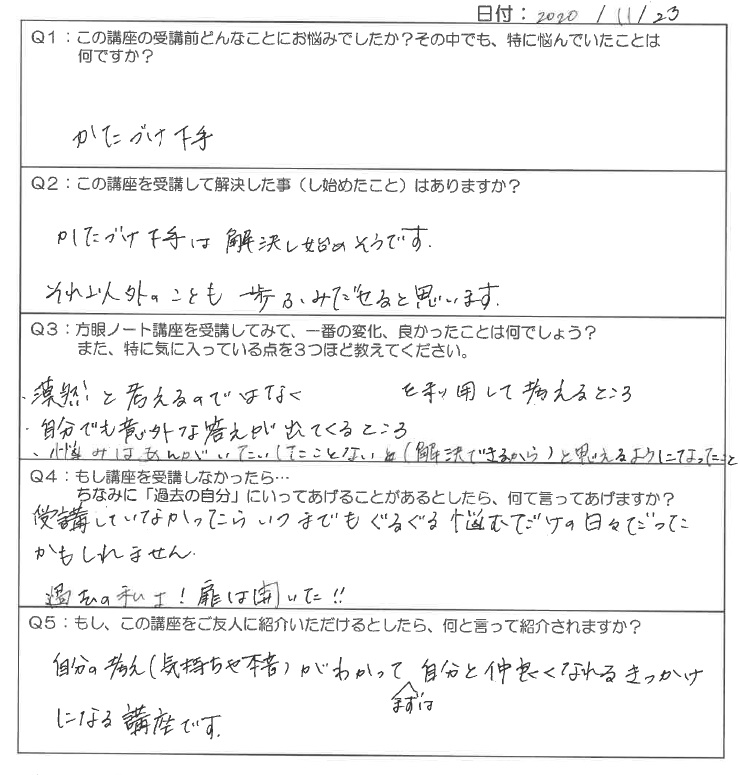 日付：2020 / 11 / 23
Q1：この講座の受講前どんなことにお悩みでしたか？その中でも、特に悩んでいたことは
何ですか？
かたづけ下手
Q2：この講座を受講して解決した事（し始めたこと）はありますか？
かたづけ下手は解決し始めそうです.
それ以外のことも一歩ふみだせると思います.
Q3：方眼ノート講座を受講してみて、一番の変化、良かったことは何でしょう？
また、特に気に入っている点を3つほど教えてください。
・漠然と考えるのではなく を利用して考えるところ
・自分でも意外な答えが出てくるところ
・悩みはあんがいたいしたことないと(解決できるから)と思えるようになったこと
Q4：もし講座を受講しなかったら…
ちなみに「過去の自分」にいってあげることがあるとしたら、何て言ってあげますか？
受講していなかったらいつまでもぐるぐる悩むだけの日々だった
かもしれません.
過去の私よ！扉は開いた!!
Q5：もし、この講座をご友人に紹介いただけるとしたら、何と言って紹介されますか？
自分の考え(気持ちや本音)がわかって 自分と仲良くなれるきっかけ
まずは
になる講座です.